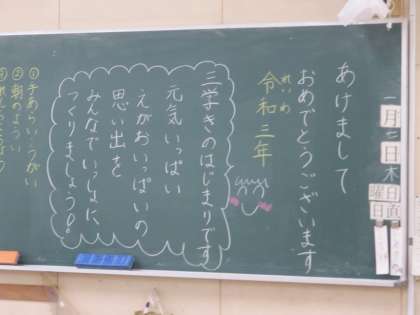 一月
日
木
曜日
日直
あけまして
おめでとうございます
れいわ
令和三年
三学きのはじまりです
元気いっぱい
えがおいっぱいの
思い出を
みんなでいっしょに、
つくりましょう!
①手あらい・うがい
②朝のようい